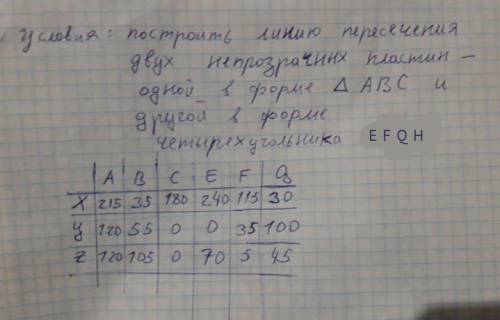 Условия: построить линию пересечения
двух непрозрачних пластин —
одной в форме △ ABC и
другой в форме
четырехугольника E F Q H
A B C E F Q
X 215 35 180 240 115 30
y 120 55 0 0 35 100
z 120 105 0 70 5 45